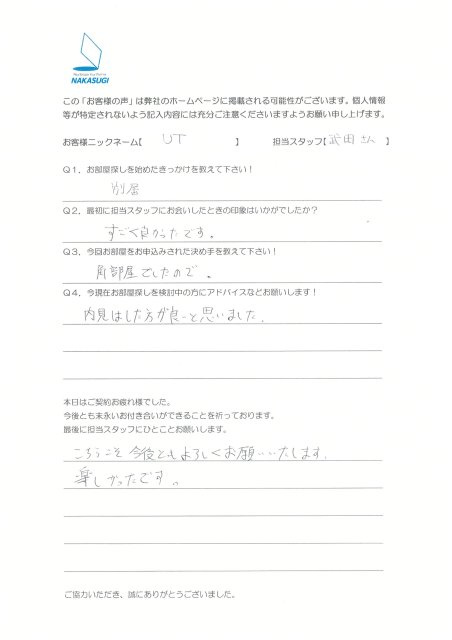 NAKASUGI
この「お客様の声」は弊社のホームページに掲載される可能性がございます。個人情報
等が特定されないよう記入内容には充分ご注意くださいますようお願い申し上げます。
お客様ニックネーム【 UT 】 担当スタッフ【武田さん】
Q1．お部屋探しを始めたきっかけを教えて下さい！
別居
Q2．最初に担当スタッフにお会いしたときの印象はいかがでしたか？
すごく良かったです。
Q3．今回お部屋をお申込みされた決め手を教えて下さい！
角部屋でしたので。
Q4．今現在お部屋探しを検討中の方にアドバイスなどお願いします！
内見はした方が良いと思いました。
本日はご契約お疲れ様でした。
今後とも末永いお付き合いができることを祈っております。
最後に担当スタッフにひとことお願いします。
こちらこそ今後ともよろしくお願いいたします。
楽しかったです。
ご協力いただき、誠にありがとうございました。